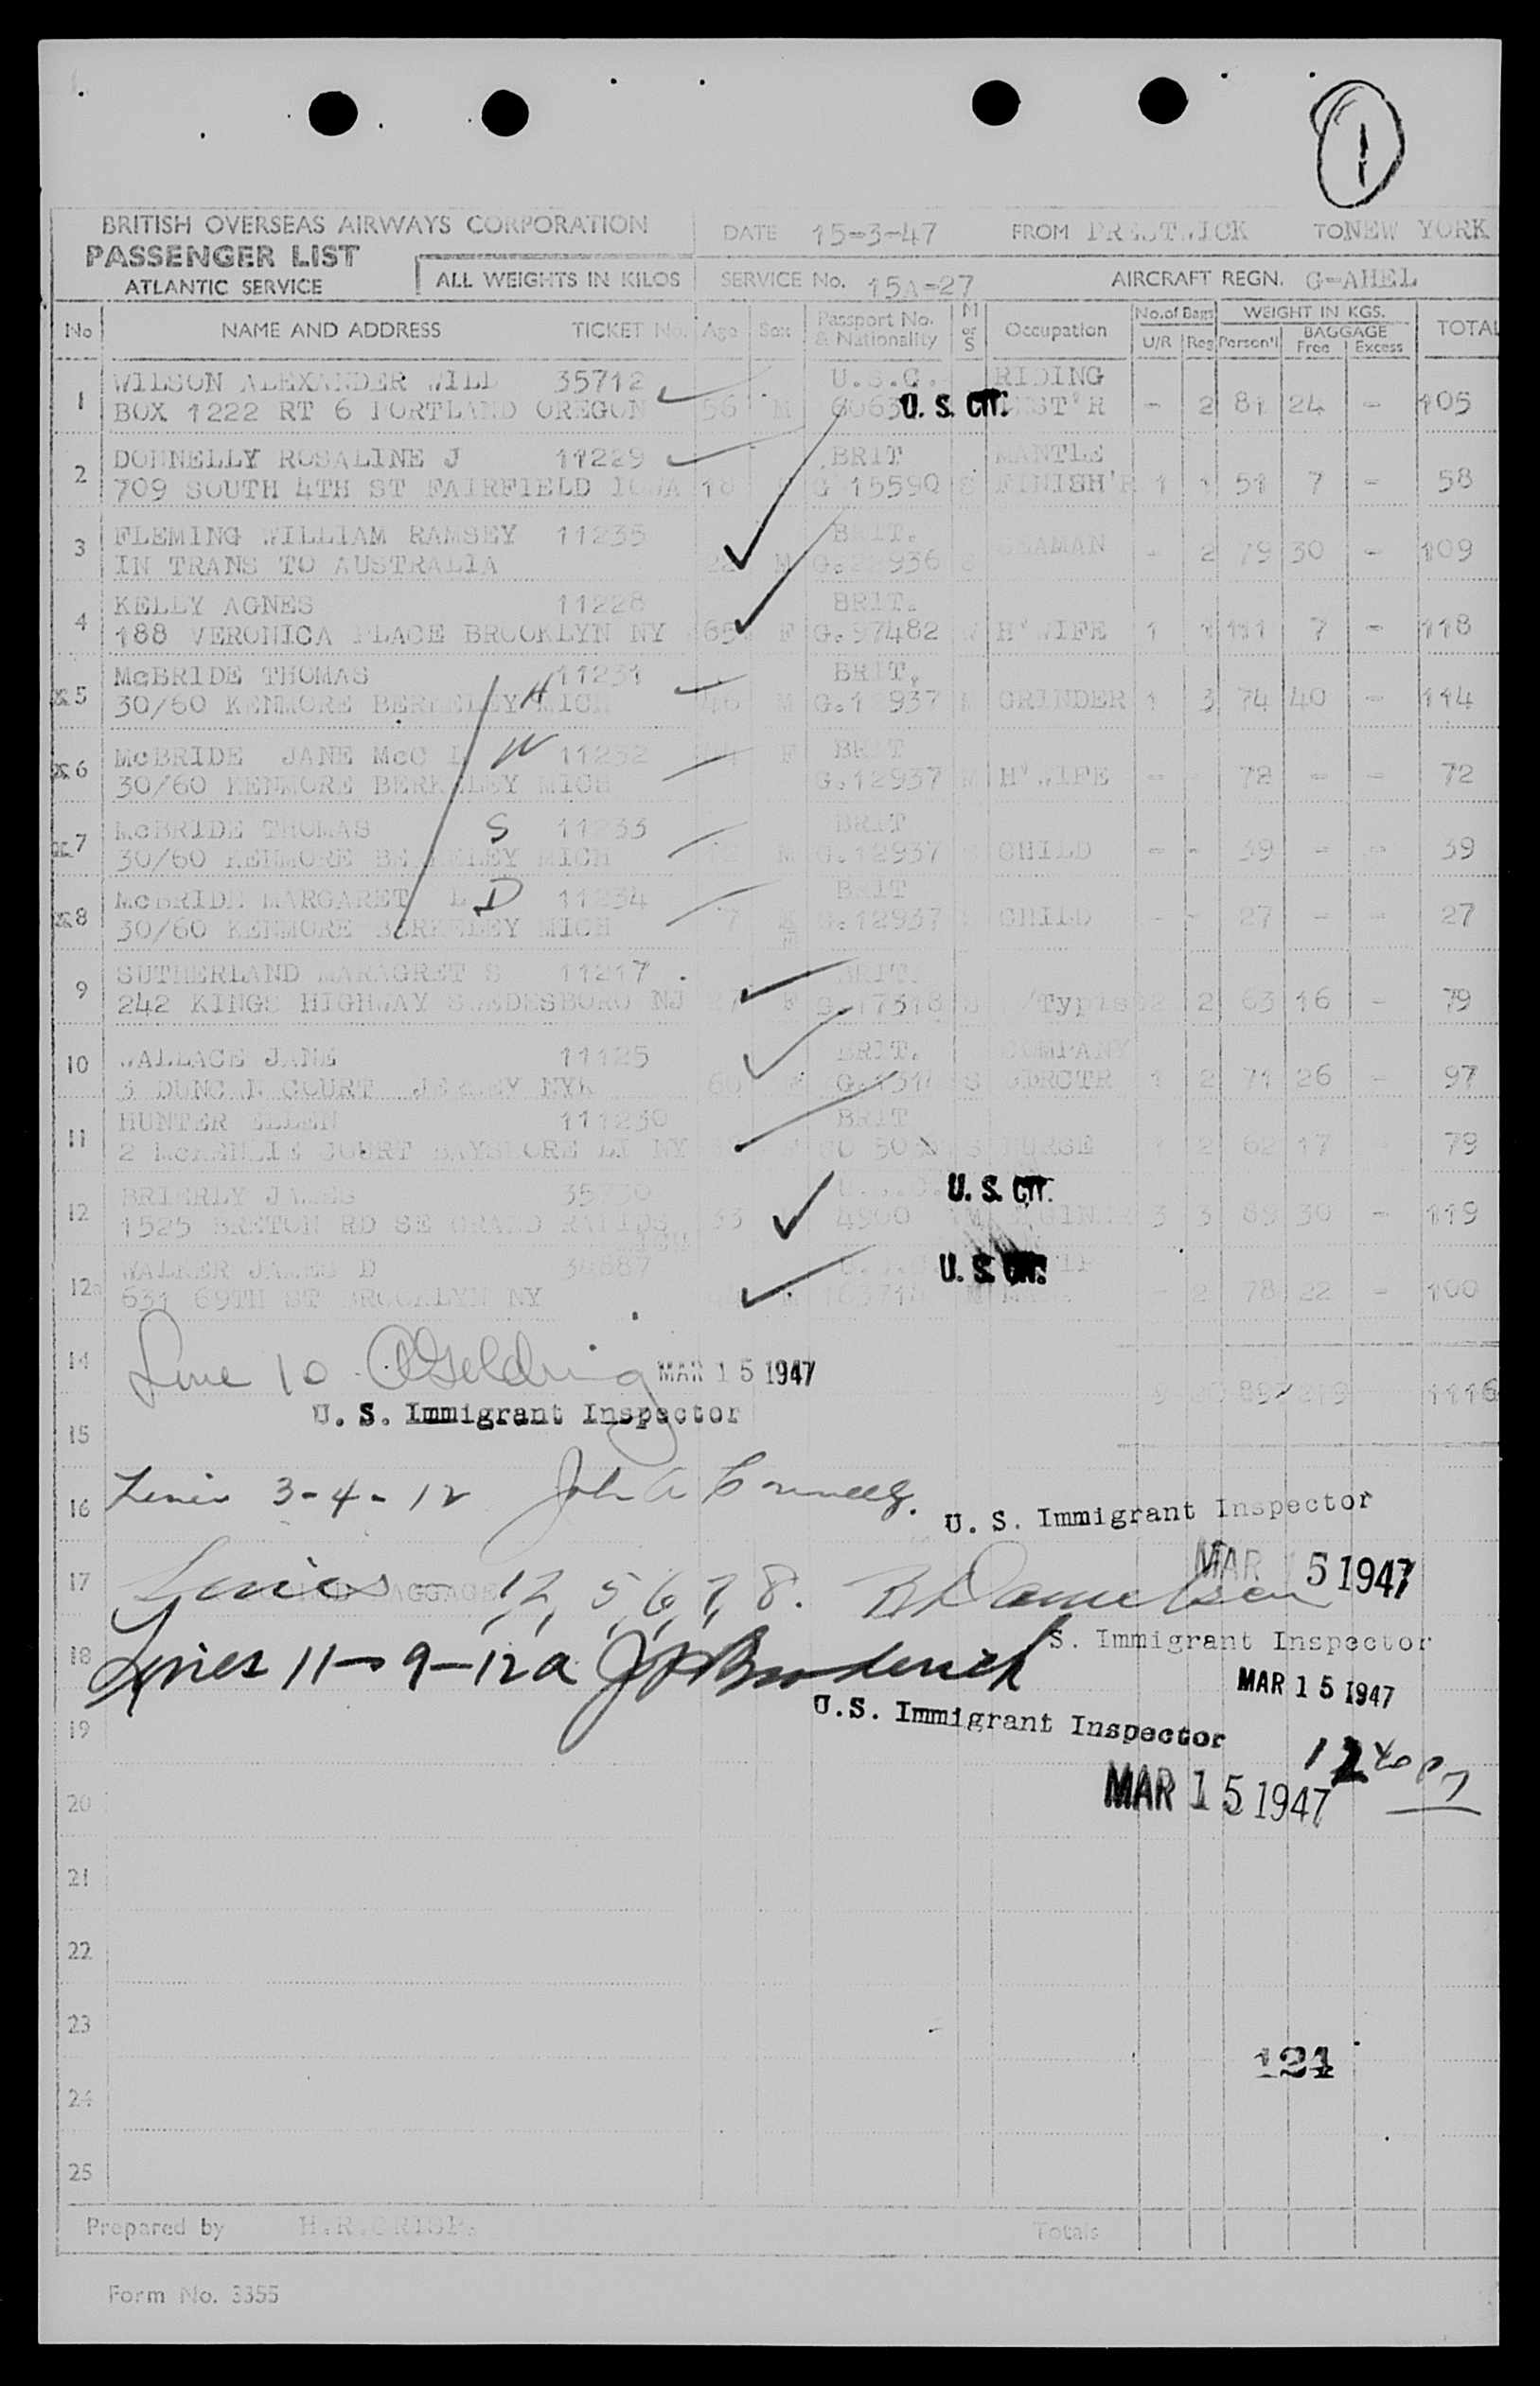 1
BRITISH OVERSEAS AIRWAYS CORPORATION
PASSENGER LIST
ATLANTIC SERVICE
ALL WEIGHTS IN KILOS
DATE 15-3-47 FROM PRESTWICK TO NEW YORK
SERVICE No. 15A-27 AIRCRAFT REGN. G-AHEL
No NAME AND ADDRESS TICKET No. Age Sex Passport No. & Nationality M or S Occupation No. of Bags U/R Reg WEIGHT IN KGS. Person'l BAGGAGE Free Excess TOTAL
1 WILSON ALEXANDER WILL 35712 U.S.C. RIDING
BOX 1222 RT 6 PORTLAND OREGON 56 M U. S. CIT. - 2 81 24 - 105
2 DONNELLY ROSALINE J 11229 BRIT MANTLE
709 SOUTH 4TH ST FAIRFIELD IOWA 18 G 15590 S FINISH'R 1 1 51 7 - 58
3 FLEMING WILLIAM RAMSEY 11235 BRIT.
IN TRANS TO AUSTRALIA M SEAMAN - 2 79 30 - 109
4 KELLY AGNES 11228 BRIT.
188 VERONICA PLACE BROOKLYN NY 65 F G.97482 W H'WIFE 1 1 111 7 - 118
x5 McBRIDE THOMAS 11231 BRIT.
30/60 KENMORE BERKELEY MICH H 46 M G.12937 M GRINDER 1 3 74 40 - 114
x6 McBRIDE JANE McC L W 11232 F BRIT
30/60 KENMORE BERKELEY MICH G.12937 M H'WIFE - - 72 - - 72
x7 McBRIDE THOMAS S 11233 BRIT
30/60 KENMORE BERKELEY MICH 12 M G.12937 S CHILD - - 39 - - 39
x8 McBRIDE MARGARET L D 11234 BRIT
30/60 KENMORE BERKELEY MICH 7 G.12937 CHILD - - 27 - - 27
9 SUTHERLAND MARAGRET S 11217 BRIT.
242 KINGS HIGHWAY SWEDESBORO NJ 27 F G.17318 S /Typist 2 2 63 16 - 79
10 WALLACE JANE 11125 BRIT. COMPANY
3 DUNCAN COURT NYK 60 F S DIRCTR 1 2 71 26 - 97
11 HUNTER ELLEN 111230 BRIT
2 COURT BAYSHORE LI NY F S NURSE 1 2 62 17 79
12 BRIERLY JAMES 35730 U.S.C. U. S. CIT.
1525 BRETON RD SE GRAND RAPIDS 33 4900 M ENGINER 3 3 89 30 - 119
MICH
12a WALKER JAMES D U. S. CIT.
631 69TH ST BROOKLYN NY M M - 2 78 22 - 100
14 Line 10 MAR 15 1947
897 219 1116
U. S. Immigrant Inspector
15
16 Lines 3-4-12 John A U. S. Immigrant Inspector
MAR 15 1947
17 Lines 1, 2, 5, 6, 7, 8. Danielsen
S. Immigrant Inspector
18 Lines 11-9-12a Broderick
MAR 15 1947
U.S. Immigrant Inspector
19
12 40 P
MAR 15 1947
20
21
22
23
121
24
25
Prepared by H.R.CRISP. Totals
Form No. 3355